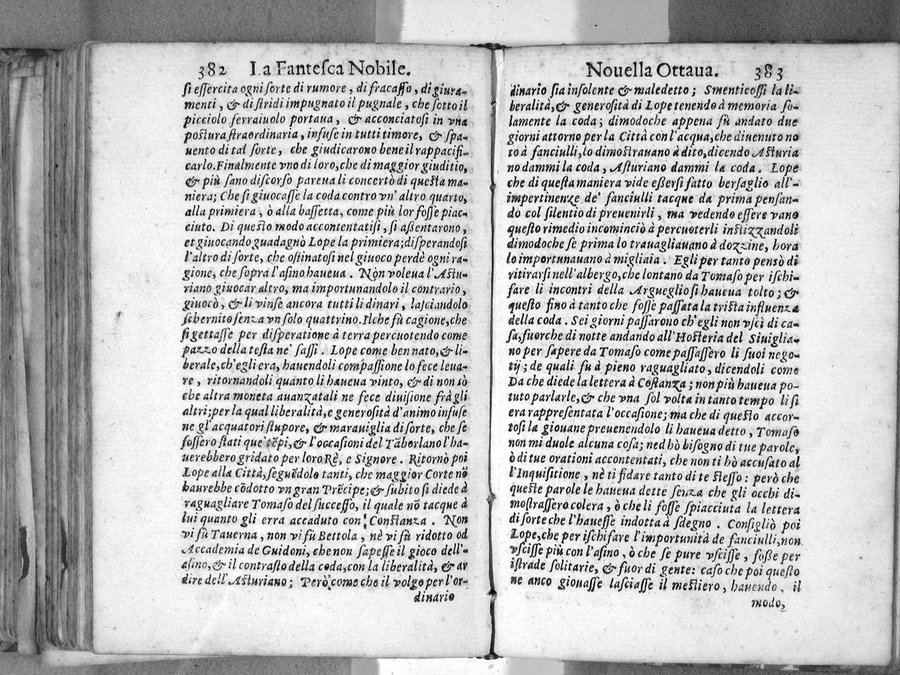 382 La Fantesca Nobile.
si essercita ogni sorte di rumore, di fracasso, di giura-
menti, & di stridi impugnato il pugnale, che sotto il
picciolo ferraiuolo portaua, & acconciatosi in vna
postura straordinaria, infuse in tutti timore, & spa-
uento di tal sorte, che giudicarono bene il rappacifi-
carlo. Finalmente vno di loro, che di maggior giuditio,
& più sano discorso pareua li concertò di questa ma-
niera; Che si giuocasse la coda contro vn' altro quarto,
alla primiera, ò alla bassetta, come più lor fosse piac-
ciuto. Di questo modo accontentatisi, si assentarono,
et giuocando guadagnò Lope la primiera; disperandosi
l'altro di sorte, che ostinatosi nel giuoco perdè ogni ra-
gione, che sopra l'asino haueua. Nòn voleua l'Astu-
riano giuocar altro, ma importunandolo il contrario,
giuocò, & li vinse ancora tutti li dinari, lasciandolo
schernito senza vn solo quattrino. Ilche fù cagione, che
si gettasse per disperatione à terra percuotendo come
pazzo della testa ne' sassi. Lope come ben nato, & li-
berale, ch'egli era, hauendoli compassione lo fece leua-
re, ritornandoli quanto li haueua vinto, & di non sò
che altra moneta auanzatali ne fece diuisione frà gli
altri; per la qual liberalità, e generosità d'animo infuse
ne gl'acquatori stupore, & marauiglia di sorte, che se
fossero stati que' tẽpi, & l'occasioni del Tãberlano l'ha-
uerebbero gridato per loro Rè, e Signore. Ritornò poi
Lope alla Città, seguẽdolo tanti, che maggior Corte nõ
haurebbe cõdotto vn gran Prẽcipe; & subito si diede à
raguagliare Tomaso del successo, il quale nõ tacque à
lui quanto gli erra accaduto con Constanza. Non
vi fù Tauerna, non vi fù Bettola, nè vi fù ridotto od
Accademia de Guidoni, che non sapesse il gioco dell'-
asino, & il contrasto della coda, con la liberalità, & ar
dire dell'Asturiano; Però come che il volgo per l'or-
dinario
Nouella Ottaua. 383
dinario sia insolente & maledetto; Smenticossi la li-
beralità, & generosità di Lope tenendo à memoria so-
lamente la coda; dimodoche appena fù andato due
giorni attorno per la Città con l'acqua, che diuenuto no
to à fanciulli, lo dimostrauano à dito, dicendo Asturia
no dammi la coda, Asturiano dammi la coda. Lope
che di questa maniera vide essersi fatto bersaglio all'-
impertinenze de' fanciulli tacque da prima pensan-
do col silentio di preuenirli, ma vedendo essere vano
questo rimedio incominciò à percuoterli instizzandoli
dimodoche se prima lo trauagliauano à dozzine, hora
lo importunauano à migliaia. Egli per tanto pensò di
ritirarsi nell'albergo, che lontano da Tomaso per ischi-
fare li incontri della Argueglio si haueua tolto; &
questo fino à tanto che fosse passata la trista influenza
della coda. Sei giorni passarono ch'egli non vscì di ca-
sa, fuorche di notte andando all'Hosteria del Siuiglia-
no per sapere da Tomaso come passassero li suoi nego-
tij; de quali fu à pieno raguagliato, dicendoli come
Da che diede la lettera à Costanza; non più haueua po-
tuto parlarle, & che vna sol volta in tanto tempo li si
era rappresentata l'occasione; ma che di questo accor-
tosi la giouane preuenendolo li haueua detto, Tomaso
non mi duole alcuna cosa; ned hò bisogno di tue parole,
ò di tue orationi accontentati, che non ti hò accusato al
l'Inquisitione, nè ti fidare tanto di te stesso: però che
queste parole le haueua dette senza che gli occhi di-
mostrassero colera, ò che li fosse spiacciuta la lettera
di sorte che l'hauesse indotta à sdegno. Consigliò poi
Lope, che per ischifare l'importunità de fanciulli, non
vscisse più con l'asino, ò che se pure vscisse, fosse per
istrade solitarie, & fuor di gente: caso che poi questo
ne anco giouasse lasciasse il mestiero, hauendo, il
modo,